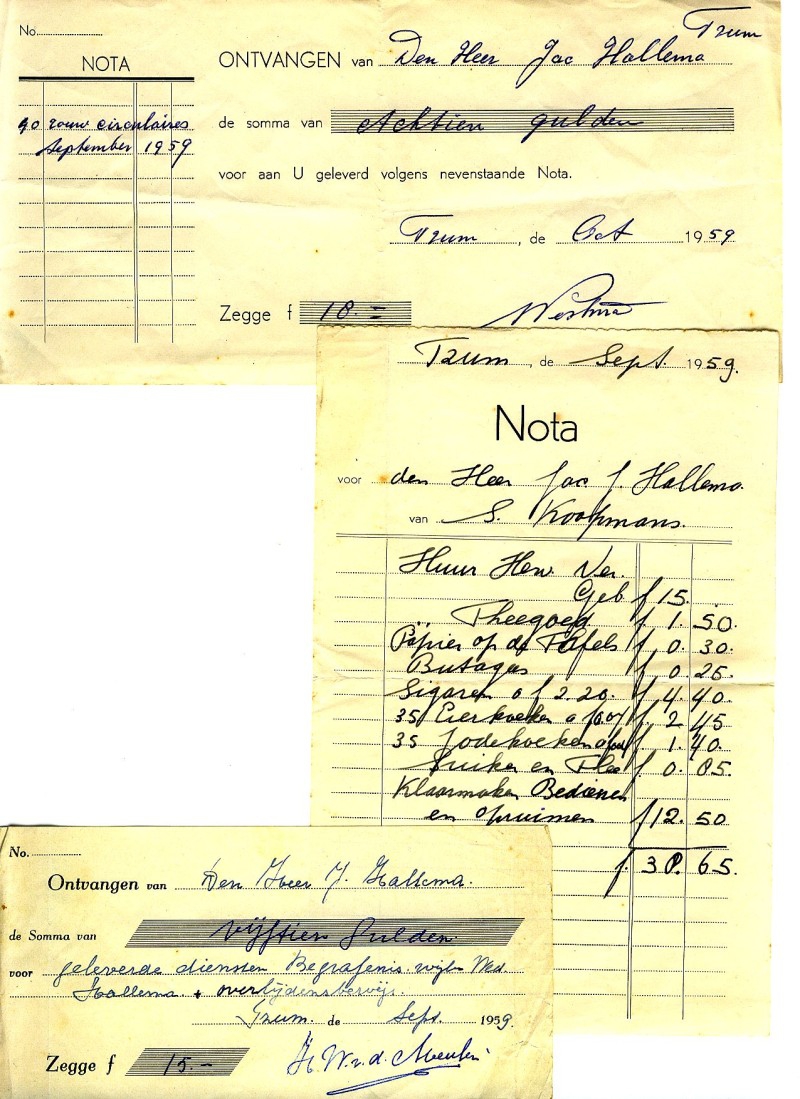 No.
NOTA
90 rouw circulaires
September 1959
Tzum
ONTVANGEN van Den Heer Jac Hallema
de somma van Achtien gulden
voor aan U geleverd volgens nevenstaande Nota.
Tzum, de Oct 1959
Zegge f 18.=
Westra
Tzum, de Sept. 1959.
Nota
voor den Heer Jac J. Hallema.
van S. Koopmans.
Huur Herv Ver.
Geb f 15.
Theegoed f 1. 50.
Papier op de Tafels f 0. 30.
Butagas f 0. 25.
Sigaren a f 2.20. f 4. 40.
35 Eierkoeken a f 0.07 f 2. 45
35 Jodekoeken f 1. 40.
Suiker en Thee f 0. 85.
Klaarmaken Bedienen
en opruimen f 12. 50
f. 38. 65.
No.
Ontvangen van Den Heer J. Hallema.
de Somma van vijftien Gulden
voor geleverde diensten Begrafenis wijln Wed.
Hallema + overlijdensbewijs.
Tzum. de Sept. 1959.
Zegge f 15.-
v.d. Meulen